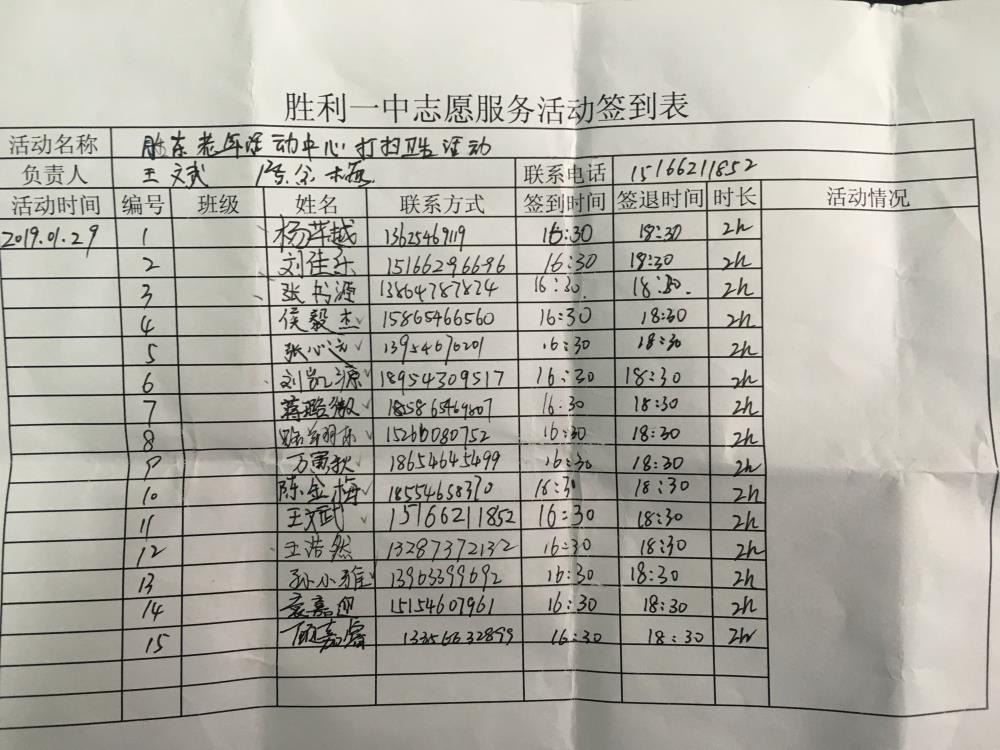 胜利一中志愿服务活动签到表
活动名称 胜东老年活动中心打扫卫生活动
负责人 王文武 陈金梅 联系电话 15166211852
活动时间 编号 班级 姓名 联系方式 签到时间 签退时间 时长 活动情况
2019.01.29 1 杨萍越 13625469119 16:30 18:30 2h
2 刘佳乐 15166296696 16:30 18:30 2h
3 张书源 13864787874 16:30 18:30 2h
4 侯毅杰 15865466560 16:30 18:30 2h
5 张心远 13954670201 16:30 18:30 2h
6 刘凯源 18954309517 16:30 18:30 2h
7 蒋皓微 16:30 18:30 2h
8 15266080752 16:30 18:30 2h
9 万寓秋 18654645499 16:30 18:30 2h
10 陈金梅 18554658370 16:30 18:30 2h
11 王文武 15166211852 16:30 18:30 2h
12 王浩然 13287372132 16:30 18:30 2h
13 孙小雅 13963399692 16:30 18:30 2h
14 袁嘉 15154607961 16:30 18:30 2h
15 顾嘉睿 13356632899 16:30 18:30 2h